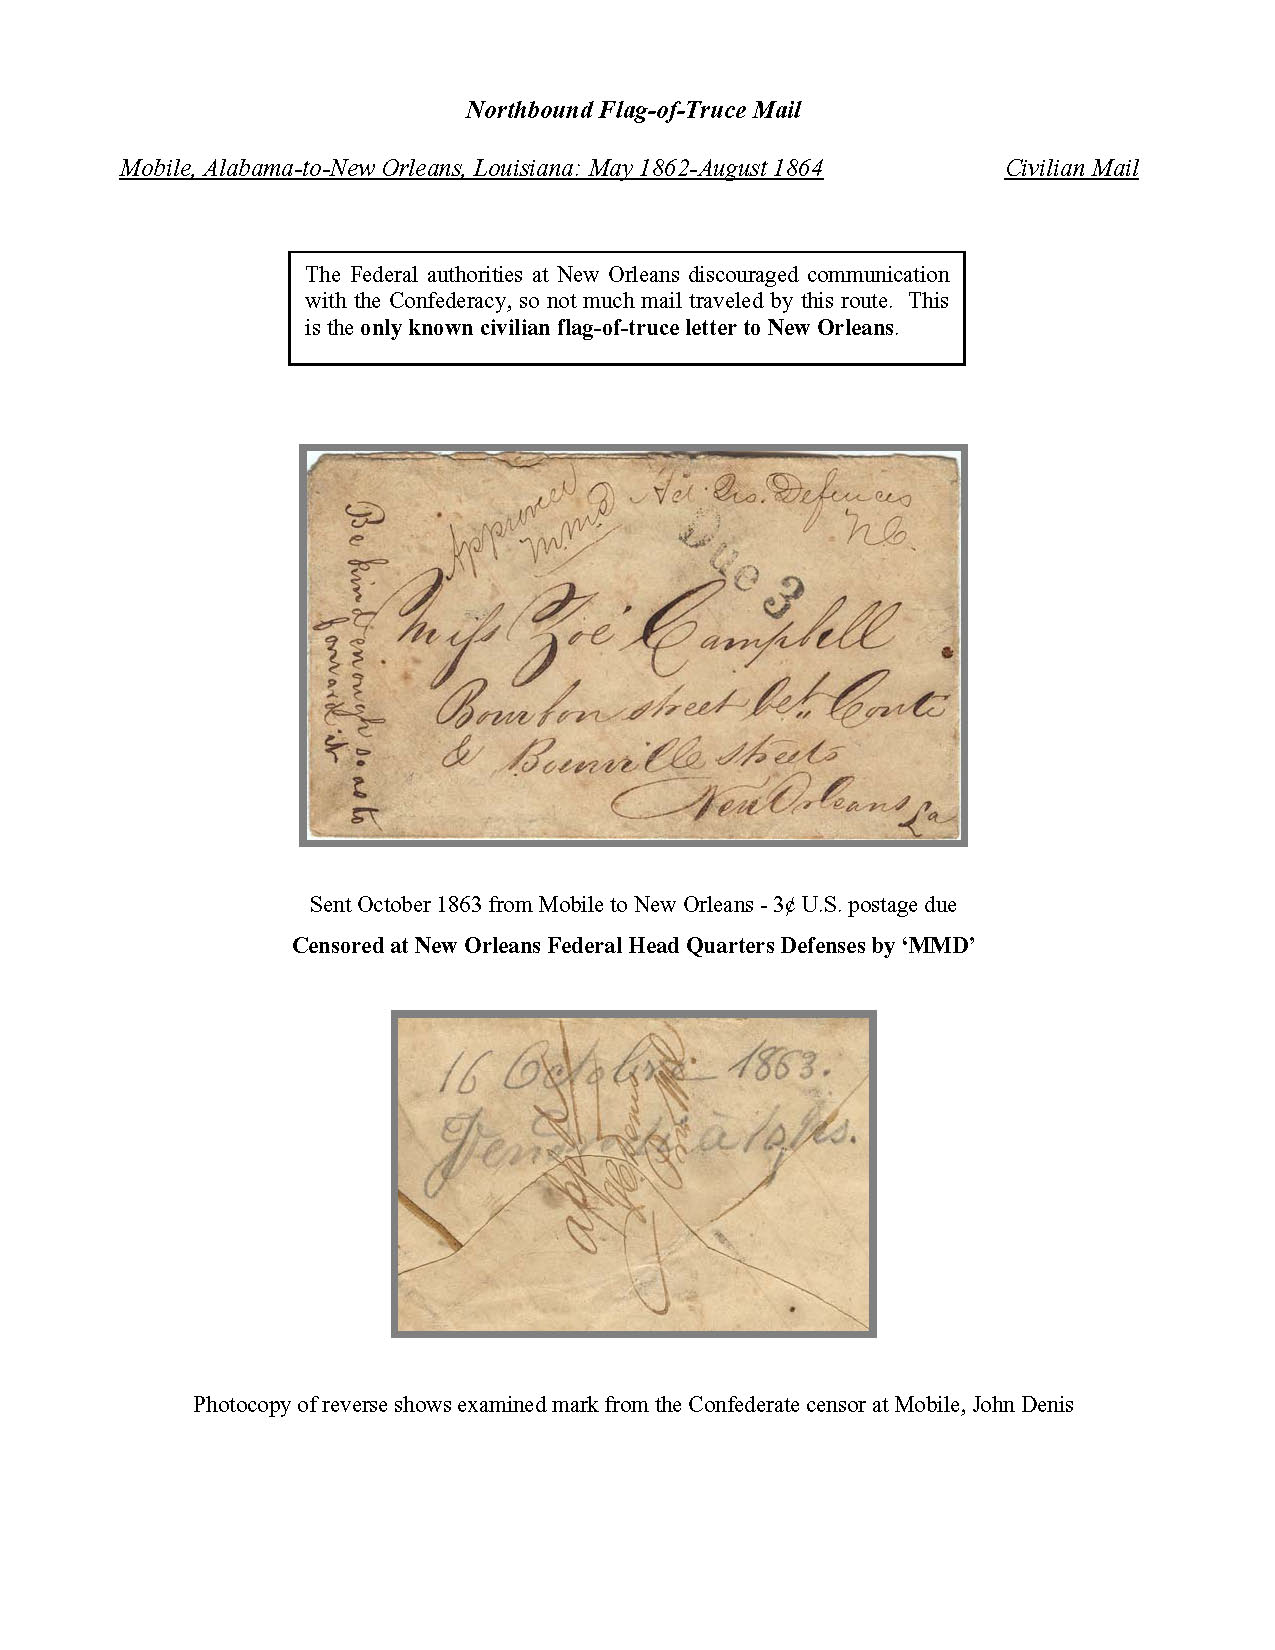 Northbound Flag-of-Truce Mail
Mobile, Alabama-to-New Orleans, Louisiana: May 1862-August 1864 Civilian Mail
The Federal authorities at New Orleans discouraged communication
with the Confederacy, so not much mail traveled by this route. This
is the only known civilian flag-of-truce letter to New Orleans.
Approved
MMD
Hd. Qrs. Defences
N.O.
Due 3
Be kind enough so as to
forward it
Miss Zoé Campbell
Bourbon street bet. Conti
& Bienville streets
New Orleans
La
Sent October 1863 from Mobile to New Orleans - 3¢ U.S. postage due
Censored at New Orleans Federal Head Quarters Defenses by ‘MMD’
16 Octobre 1863.
à
Photocopy of reverse shows examined mark from the Confederate censor at Mobile, John Denis